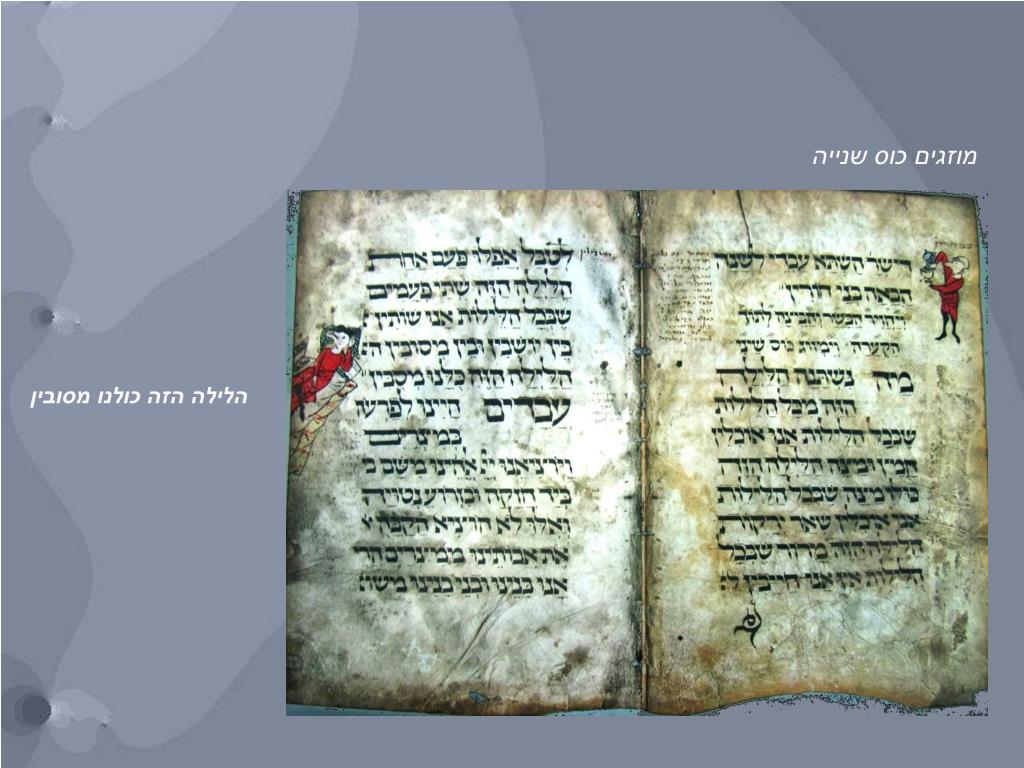 מוזגים כוס שנייה
דישראל השתא עבדי לשנה
הבאה בני חורין
הקערה וימזוג כוס שיני
מה נשתנה הלילה
הזה מכל הלילות
שבכל הלילות אנו אוכלין
חמץ ומצה הלילה הזה
כולו מצה שבכל הלילות
אנו אוכלין שאר ירקות
הלילה הזה מרור שבכל
הלילות אין אנו חייבין ל
לטבל אפלו פעם אחת
הלילה הזה שתי פעמים
שבכל הלילות אנו שותין
בין יושבין ובין מסובין ה
הלילה הזה כלנו מסבין
עבדים היינו לפרעה
במצרים
אלהינו משם ב
ביד חזקה ובזרוע נטויה
ואלו לא הוציא הקב״ה א
את אבותינו ממצרים הרי
אנו בנינו ובני בנינו מש
הלילה הזה כולנו מסובין